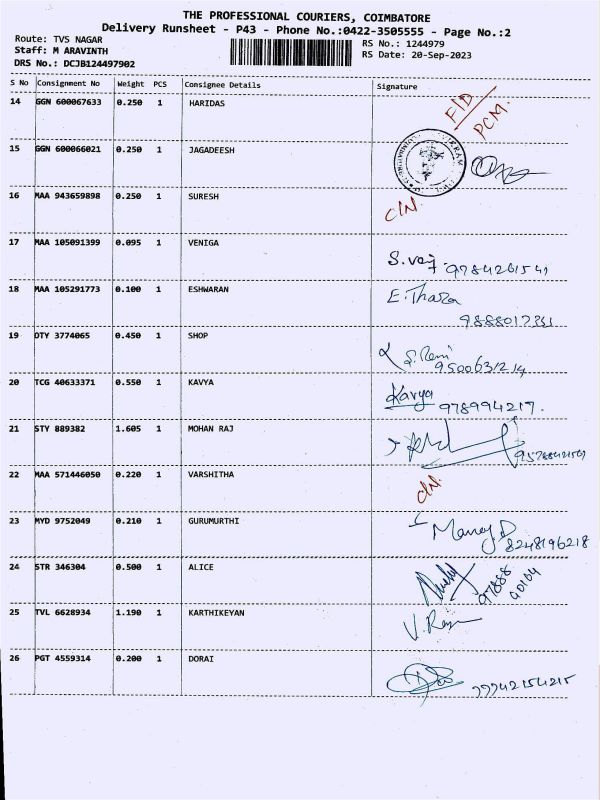 THE PROFESSIONAL COURIERS, COIMBATORE
Delivery Runsheet - P43 - Phone No.:0422-3505555 - Page No.:2
Route: TVS NAGAR
RS No.: 1244979
Staff: M ARAVINTH
RS Date: 20-Sep-2023
DRS No.: DCJB124497902
S No Consignment No Weight PCS Consignee Details Signature
14 GGN 600067633 0.250 1 HARIDAS
FID
PCM.
15 GGN 600066021 0.250 1 JAGADEESH
16 MAA 943659898 0.250 1 SURESH
17 MAA 105091399 0.095 1 VENIGA
18 MAA 105291773 0.100 1 ESHWARAN
19 DTY 3774065 0.450 1 SHOP
20 TCG 40633371 0.550 1 KAVYA Kavya
978994217.
21 STY 889382 1.605 1 MOHAN RAJ
22 MAA 571446050 0.220 1 VARSHITHA
23 MYD 9752049 0.210 1 GURUMURTHI
8248196218
24 STR 346304 0.500 1 ALICE
25 TVL 6628934 1.190 1 KARTHIKEYAN
26 PGT 4559314 0.200 1 DORAI